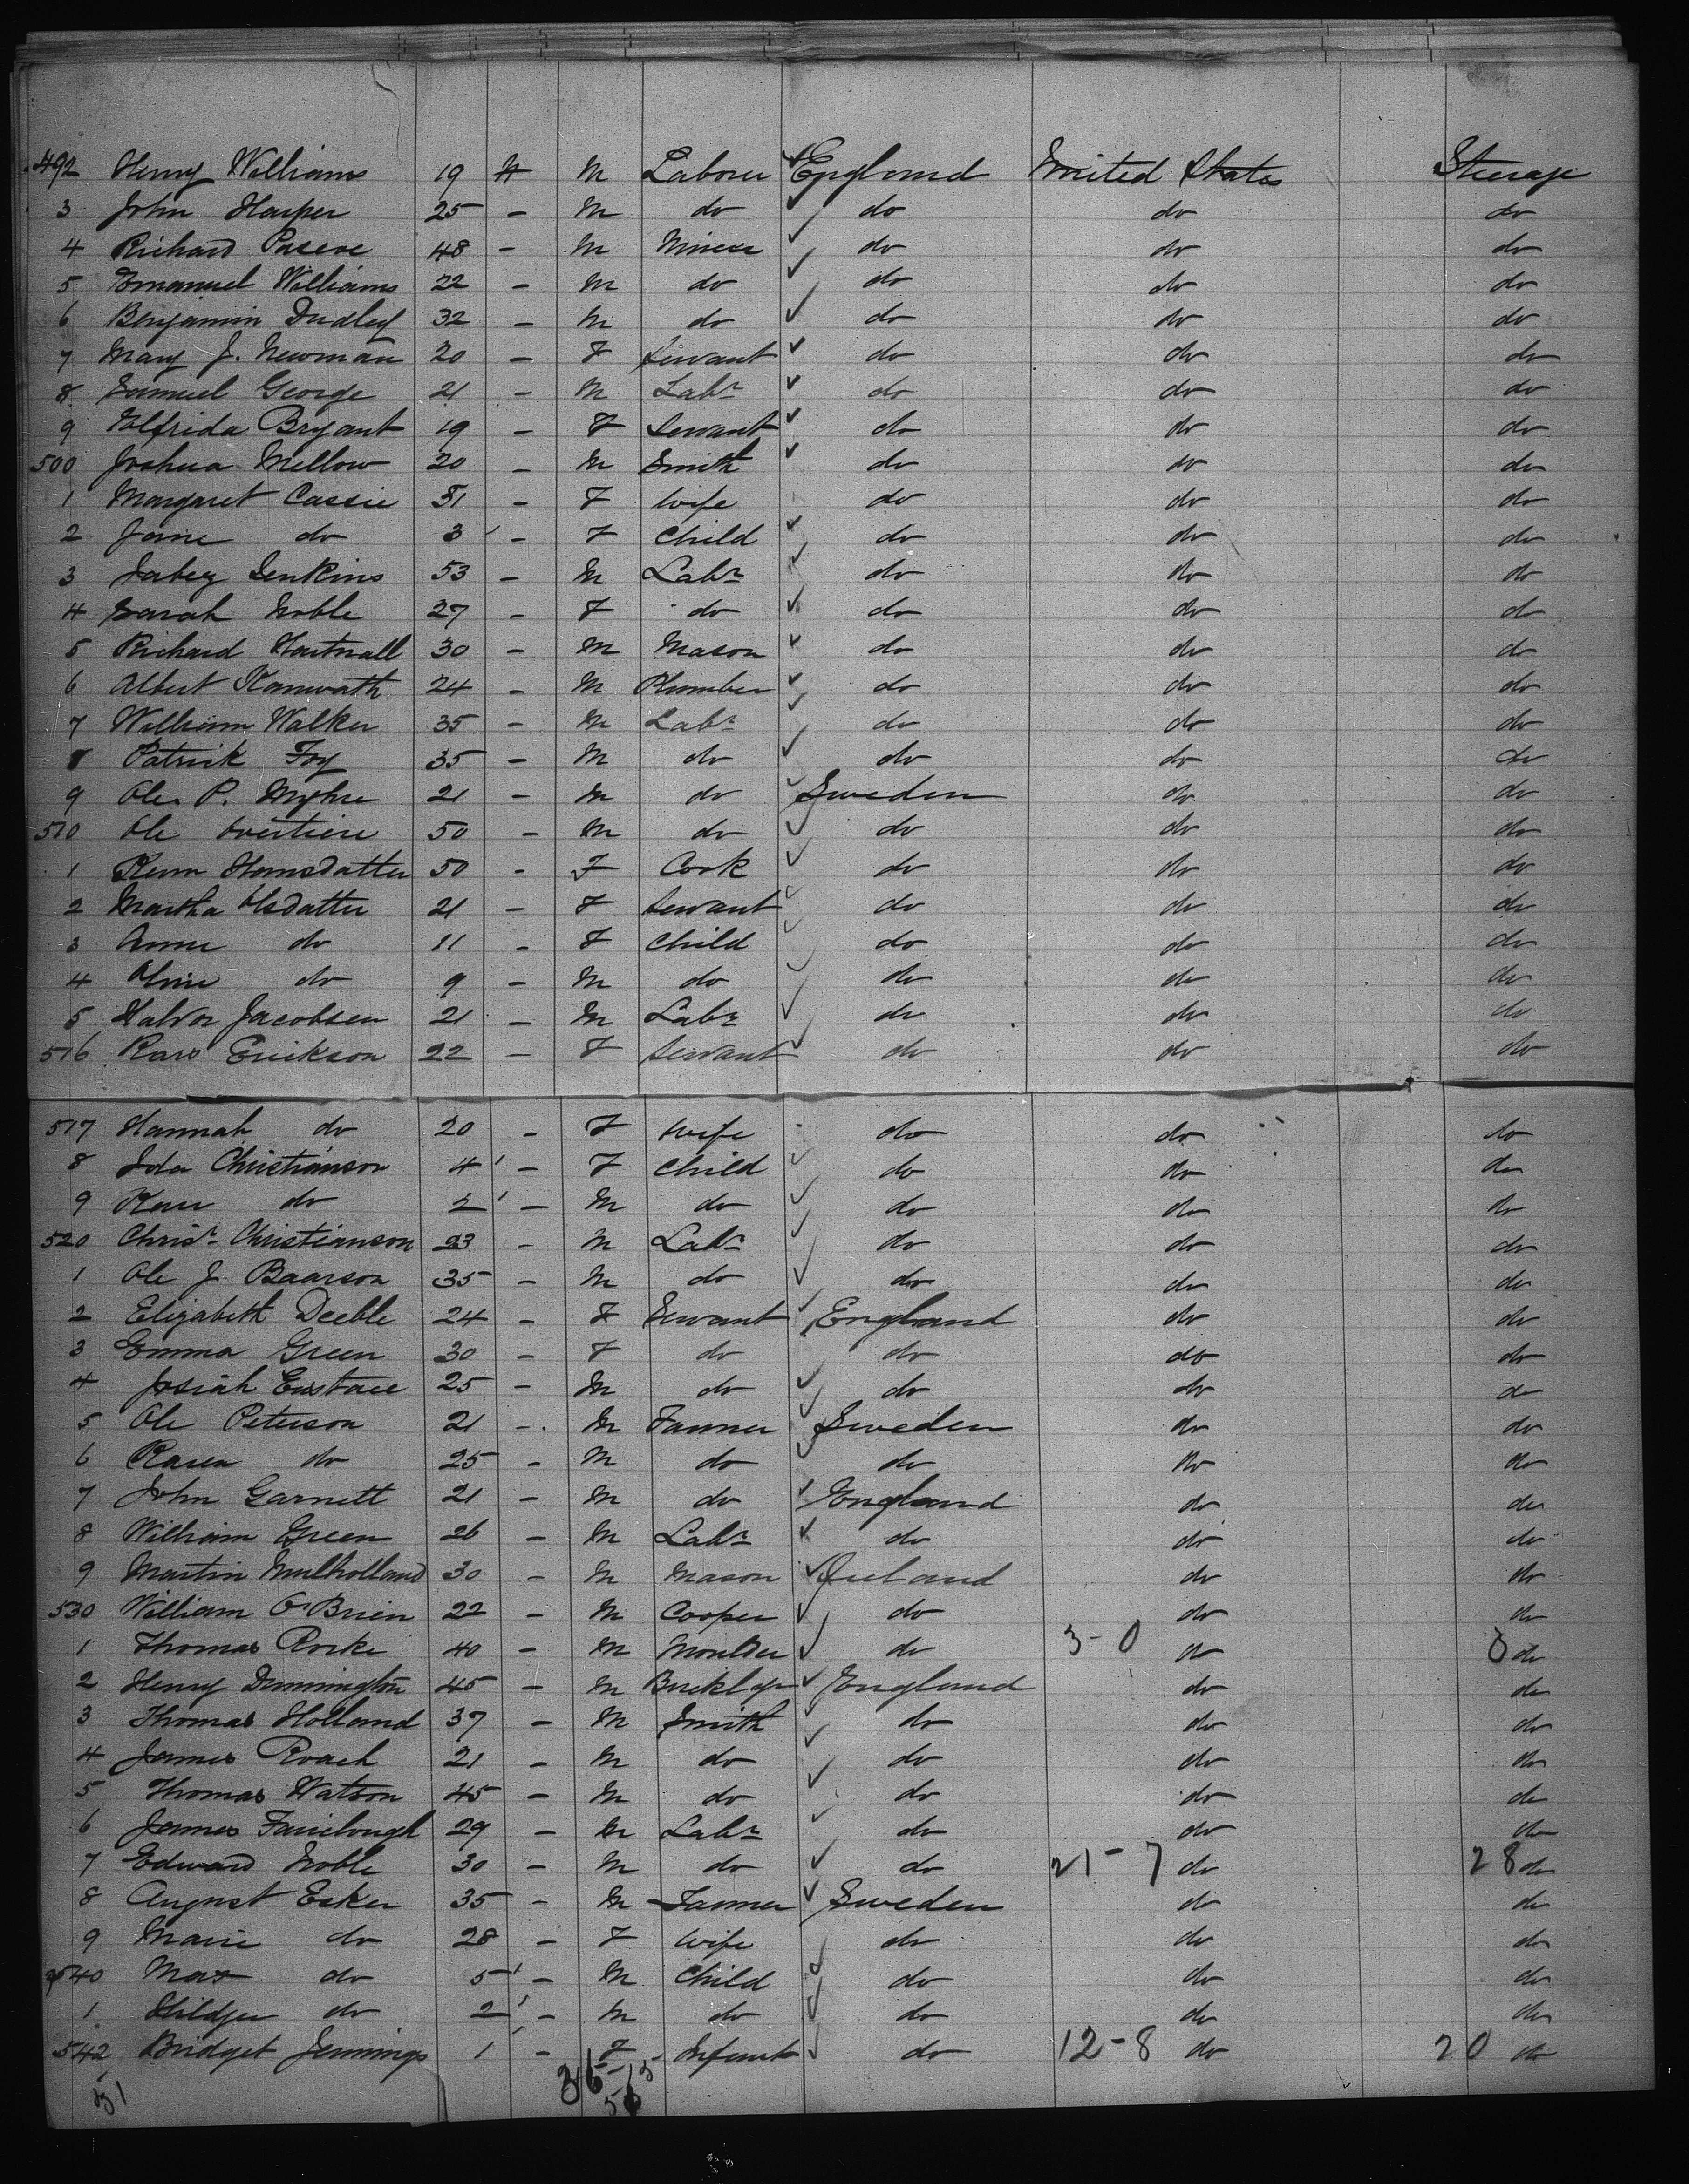 492 Henry Williams 19 M Labourer England United States Steerage
3 John Harper 25 - M do do do do
4 Richard Pascoe 48 - M Miner do do do
5 Emanuel Williams 22 - M do do do do
6 Benjamin Dudley 32 - M do do do do
7 Mary J. Newman 20 - F Servant do do do
8 Samuel George 21 - M Labr do do do
9 Elfrida Bryant 19 - F Servant do do do
500 Joshua Mellow 20 - M Smith do do do
1 Margaret Cassie 31 - F Wife do do do
2 Jane do 3 - F Child do do do
3 Jabez Jenkins 53 - M Labr do do do
4 Sarah Noble 27 - F do do do do
5 Richard Hartnall 30 - M Mason do do do
6 Albert 24 - M Plumber do do do
7 William Walker 35 - M Labr do do do
8 Patrick Foy 35 - M do do do do
9 Ole P. Myhre 21 - M do Sweden do do
510 Ole 50 - M do do do do
1 Hansdatter 50 - F Cook do do do
2 Martha Olsdatter 21 - F Servant do do do
3 Anne do 11 - F Child do do do
4 Oline do 9 - M do do do do
5 Halvor Jacobsen 21 - M Labr do do do
516 Erickson 22 - F Servant do do do
517 Hannah do 20 - F Wife do do do
8 Ida Christianson 4 - F Child do do do
9 do 2 - M do do do do
520 Chrisr Christianson 23 - M Labr do do do
1 Ole J. Baarson 35 - M do do do do
2 Elizabeth Deeble 24 - F Servant England do do
3 Emma Green 30 - F do do do do
4 Josiah Eustace 25 - M do do do do
5 Ole Peterson 21 - M Farmer Sweden do do
6 Karen do 25 - M do do do do
7 John Garnett 21 - M do England do do
8 William Green 26 - M Labr do do do
9 Martin Mulholland 30 - M Mason Ireland do do
530 William O'Brien 22 - M Cooper do do do
1 Thomas Rorke 40 - M Moulder do 3-0 do 3 do
2 Henry Dinnington 45 - M Bricklyr England do do
3 Thomas Holland 37 - M Smith do do do
4 James Roach 21 - M do do do do
5 Thomas Watson 45 - M do do do do
6 James Fairclough 29 - M Labr do do do
7 Edward Noble 30 - M do do 21-7 do 28 do
8 August Esker 35 - M Farmer Sweden do do
9 Marie do 28 - F Wife do do do
540 Max do 5 - M Child do do do
1 do 2 - M do do do do
542 Bridget Jennings 1 - F Infant do 12-8 do 20 do
51 36-15